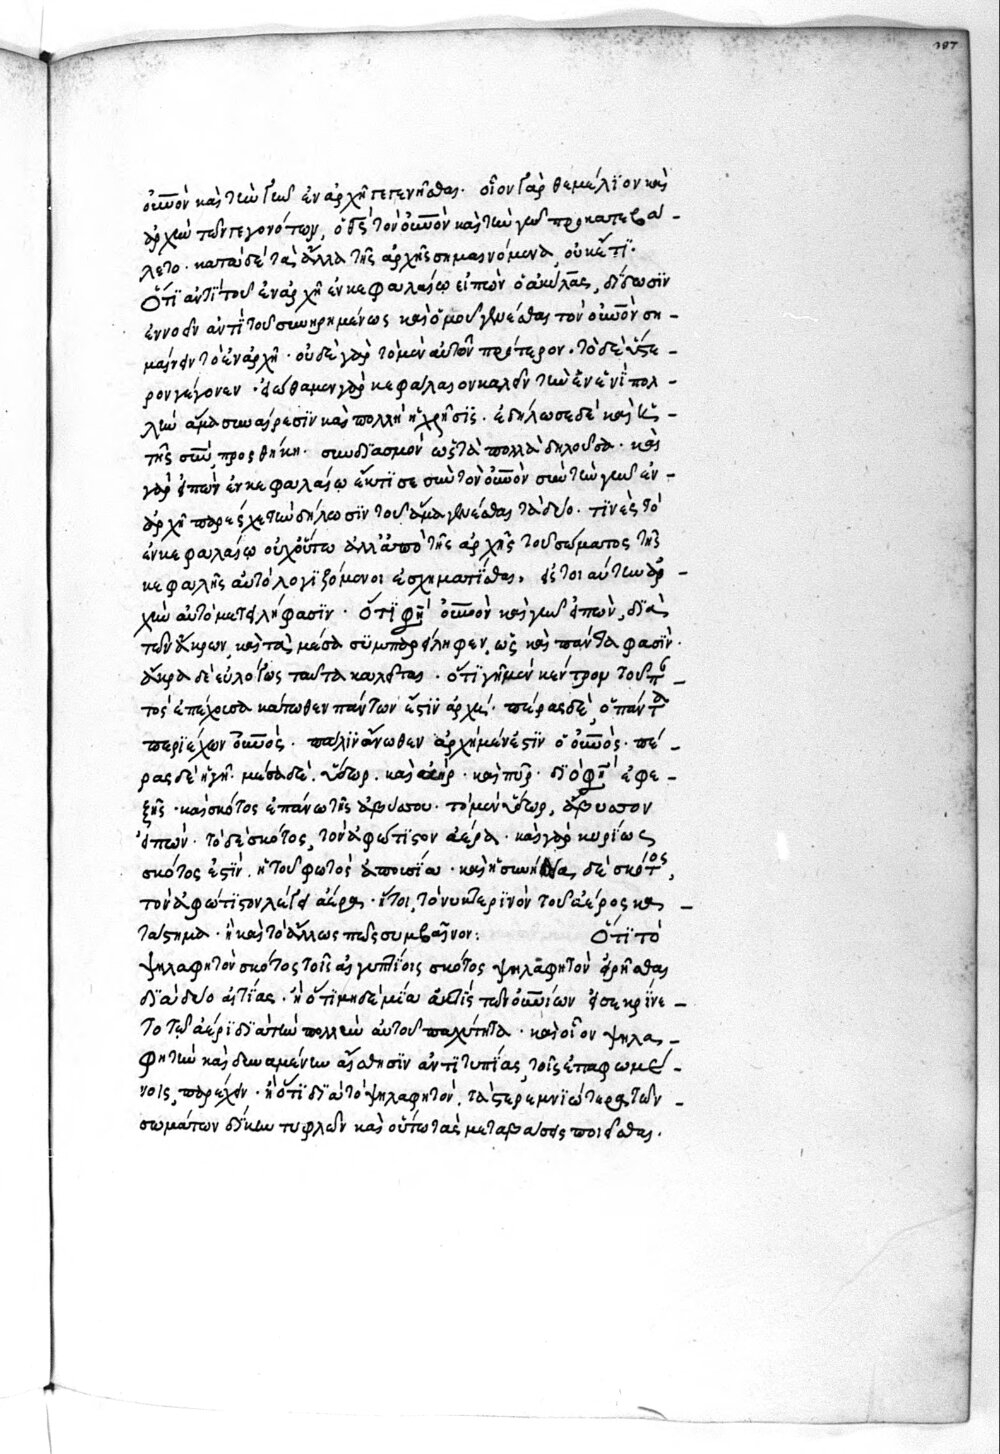 οὐνὸν καὶ τὴν γῆν ἐν ἀρχῆ γεγενῆσθαι. οἷον γὰρ θεμέλϊον καὶ
ἀρχὴν τῶν γεγονότων, ὁ θς τὸν οὐνὸν καὶ τὴν γῆν προκατεβά –
λετο. κατὰ δὲ τὰ ἄλλα τῆς ἀρχῆς σημαινόμενα, οὐκέτϊ.
Ὅτϊ ἀντὶ τοῦ ἐν ἀρχῆ ἐν κεφαλαίω εἰπὼν ὁ ἀκύλας, δίδωσϊν
ἐννοεῖν ἀντὶ τοῦ συνηρημένως καὶ ὁμοῦ γενέσθαι τὸν οὐνὸν ση –
μαίνειν τὸ ἐν ἀρχῆ. οὐδὲ γὰρ τὸ μὲν αὐτῶν πρότερον. τὸ δὲ ὕστε –
ρον γέγονεν. εἰώθαμεν γὰρ κεφάλαιον καλεῖν τὴν ἐν ἑνὶ πολ –
λῶν ἅμα συναίρεσϊν καὶ πολλὴ ἡ χρῆσϊς. ἐδήλωσε δὲ καὶ
τῆς σὺν προσθήκη. συνδϊασμὸν ὡς τὰ πολλὰ δηλοῦσα. καὶ
γὰρ εἰπὼν ἐν κεφαλαίω ἔκτϊσε σὺν τὸν οὐνὸν σὺν τὴν γῆν ἐν –
ἀρχῆ παρέσχε τὴν δήλωσϊν τοῦ ἅμα γενέσθαι τὰ δύο. τϊνὲς τὸ
ἐν κεφαλαίω οὐχ οὕτω ἀλλ' ἀπὸ τῆς ἀρχῆς τοῦ σώματος τῆς
κεφαλῆς αὐτὸ λογϊζόμενοι ἐσχηματίσθαι, εἰς τοιαύτην ἀρ –
χὴν αὐτὸ μετειλήφασϊν. Ὅτϊ φησὶ οὐνὸν καὶ γῆν εἰπὼν, δϊὰ
τῶν ἄκρων, καὶ τὰ μέσα συμπαρείληφεν, ὡς καὶ πάντα φασὶν.
ἄκρα δὲ εὐλόγως ταῦτα καλεῖται. ὅτϊ γῆ μὲν κέντρου τοῦ π –
τὸς ἐπέχουσα κάτωθεν πάντων ἐστὶν ἀρχή. πέρας δὲ, ὁ πάντα
περϊέχων οὐνός. πάλϊν ἄνωθεν ἀρχὴ μέν ἐστϊν ὁ οὐνός. πέ –
ρας δὲ ἡ γῆ. μέσα δὲ. ὕδωρ. καὶ ἀὴρ. καὶ πῦρ. δϊό φησι ἐφε –
ξῆς. καὶ σκότος ἐπάνω τῆς ἀβύσσου. τὸ μὲν ὕδωρ, ἄβυσσον
εἰπών. τὸ δὲ σκότος, τὸν ἀφώτϊστον ἀέρα. καὶ γὰρ κυρίως
σκότος ἐστὶν. ἡ τοῦ φωτὸς ἀπουσία. καὶ ἡ συνήθεια δὲ σκότος,
τὸν ἀφώτϊστον λέγει ἀέρα. ἤτοι, τὸ νυκτερϊνὸν τοῦ ἀέρος κα –
τάστημα. ἢ καὶ τὸ ἄλλως πως συμβαῖνον: Ὅτϊ τὸ
ψηλαφητὸν σκότος τοῖς αἰγυπτίοις σκότος ψηλαφητὸν εἰρῆσθαι
δϊὰ δύο αἰτίας. ἢ ὅτϊ μηδεμία ἀκτὶς τῶν οὐνίων εἰσεκρίνε –
το τῶ ἀέρϊ δϊὰ τὴν πολλὴν αὐτοῦ παχύτητα. καὶ οἷον ψηλα –
φητὴν καὶ δυναμένην αἴσθησϊν ἀντϊτυπίας, τοῖς ἐπαφωμέ –
νοις, παρέχειν. ἢ ὅτϊ δϊὰ τὸ ψηλαφητὸν, τὰ στερεμνϊώτερα τῶν –
σωμάτων δίκην τυφλῶν καὶ οὕτω τὰς μεταβάσεις ποιεῖσθαι.